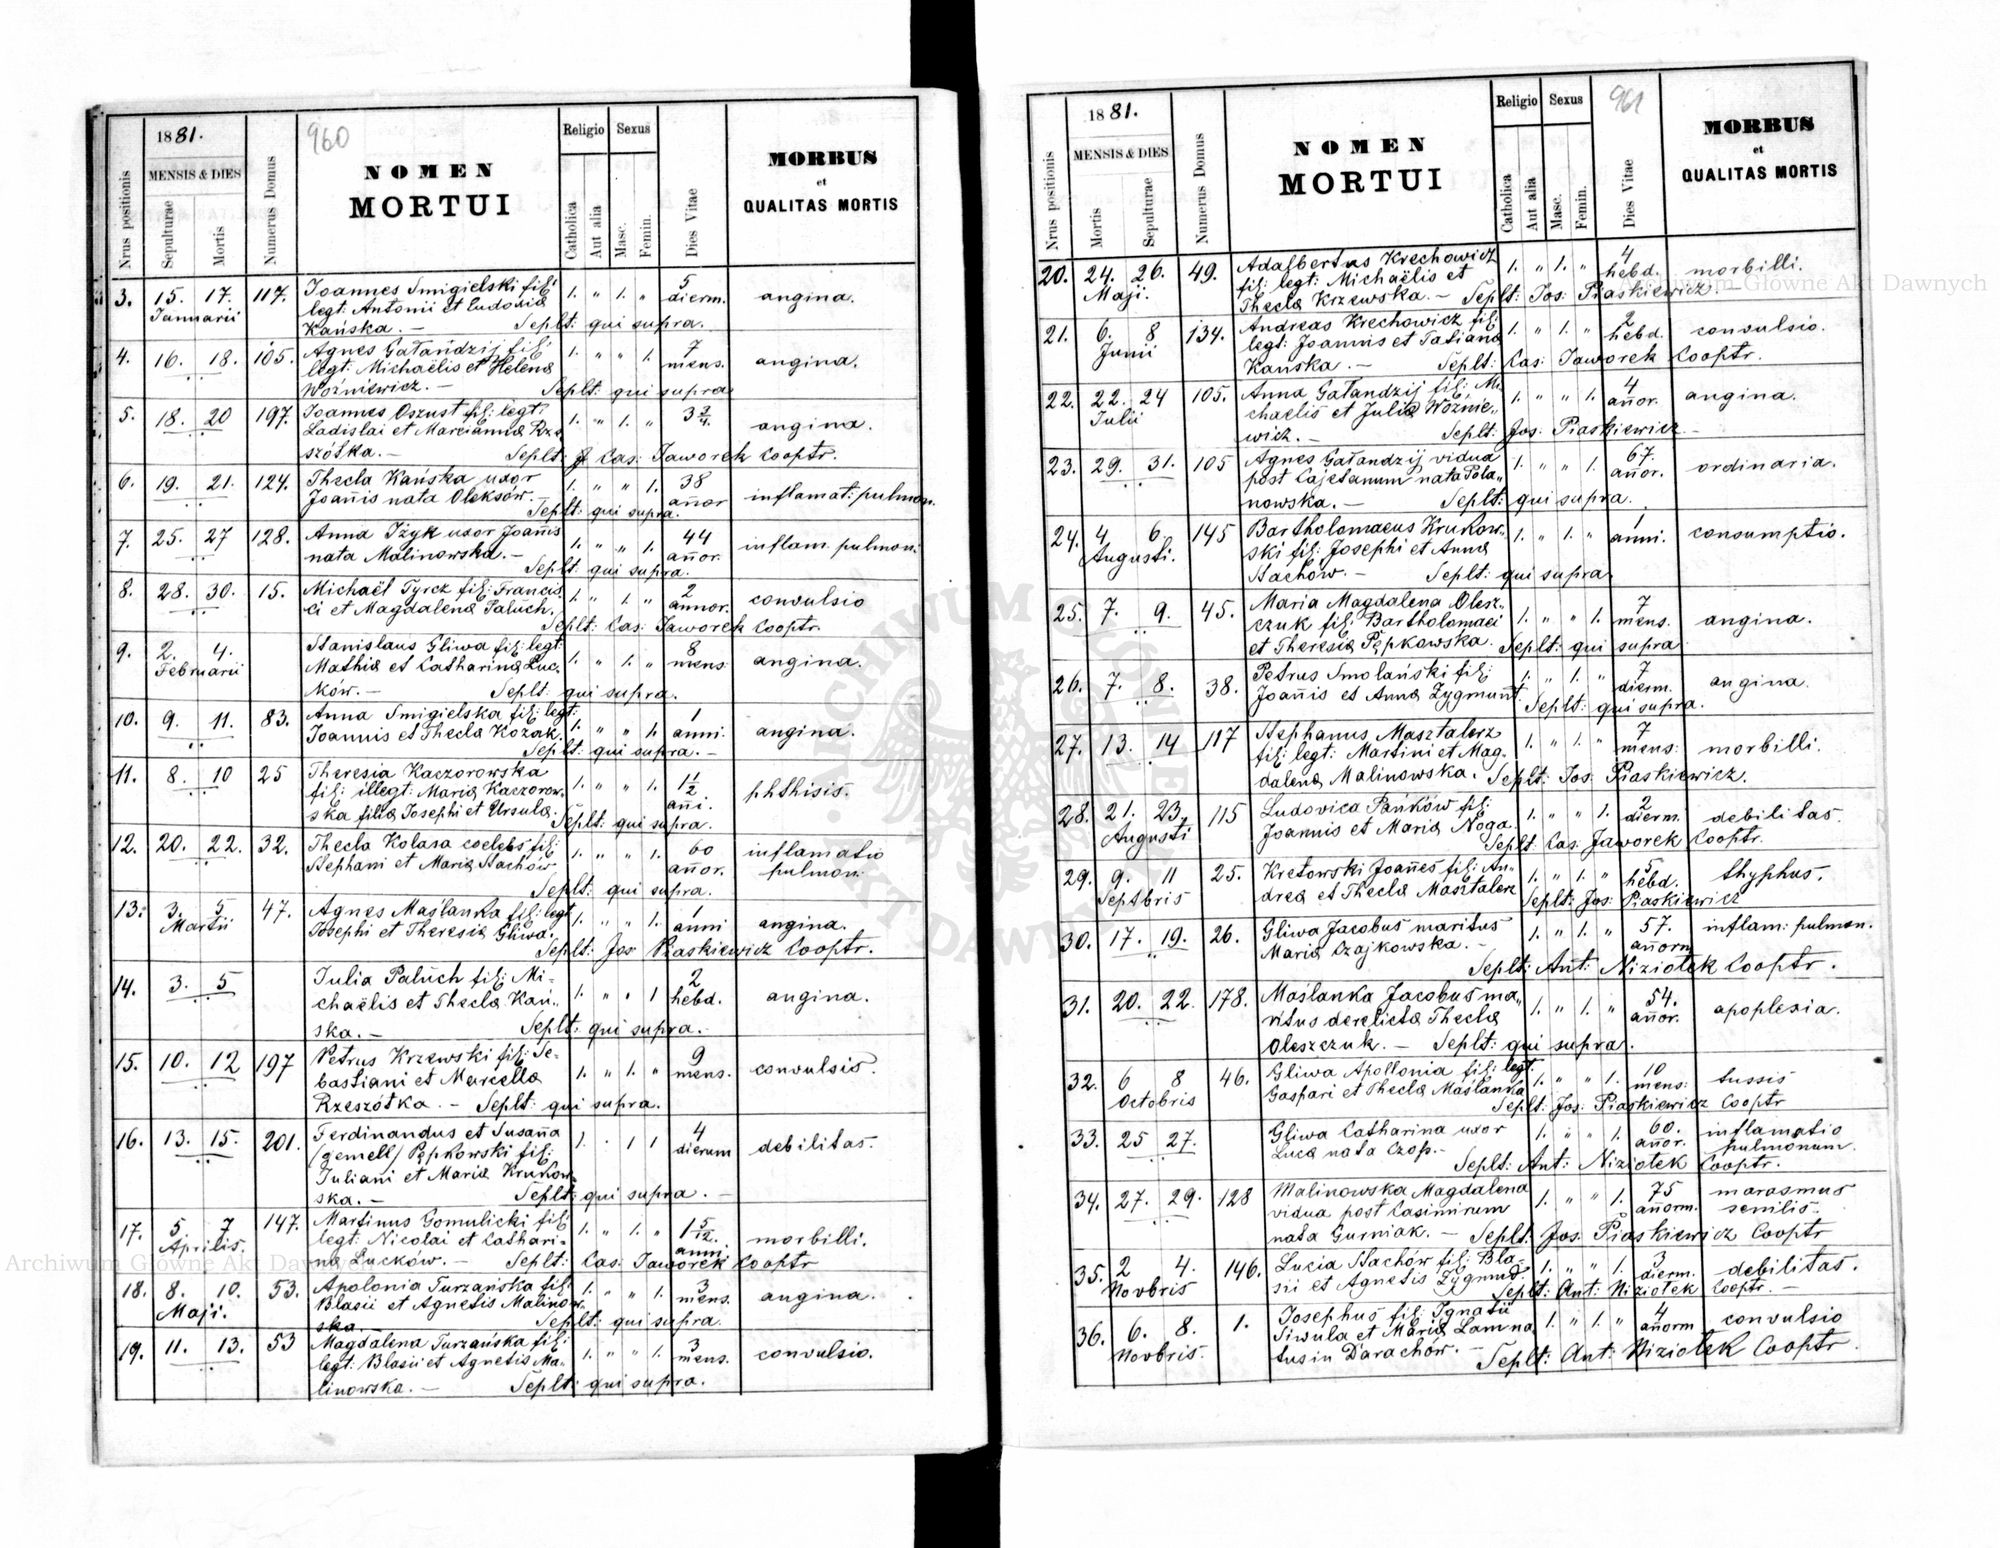 960
1881.
MENSIS & DIES
Nrus positionis
Sepulturae
Mortis
Numerus Domus
NOMEN
MORTUI
Religio
Sexus
Catholica
Aut alia
Masc.
Femin.
Dies Vitae
MORBUS
et
QUALITAS MORTIS
3. 15. 17. 117. Joannes Smigielski fil: 1. " 1. " 5
Januarii legt: Antonii et Eudoxia dierm. angina.
Kańska. — Seplt: qui supra.
4. 16. 18. 105. Agnes Gałandzij fil: 1. " " 1. 7
legt: Michaëlis et Helena mens. angina.
Woźniewicz. — Seplt: qui supra
5. 18. 20 197. Joannes Oszust fil: legt: 1. " 1. " 3 3/4.
Ladislai et Marcianna Rze angina.
szótka. — Seplt: Cas: Jaworek Cooptr.
6. 19. 21. 124. Thecla Kańska uxor 1. " " 1. 38
Joañis nata Oleksów. — añor inflamat: pulmon.
Seplt: qui supra.
7. 25. 27 128. Anna Iżyk uxor Joañis 1. " " 1. 44
nata Malinowska. — añor. inflam. pulmon.
Seplt: qui supra.
8. 28. 30. 15. Michaël Tyrcz fil: Francis 1. " 1. " 2
ci et Magdalena Paluch. annor. convulsio
Seplt: Cas: Jaworek Cooptr.
9. 2. 4. Stanislaus Gliwa fil: legt: 1. " 1. " 8
Februarii Mathia et Catharina Luc. mens: angina.
ków. — Seplt: qui supra.
10. 9. 11. 83. Anna Smigielska fil: legt: 1. " " 1. 1
Joannis et Thecla Kozak. anni. angina.
Seplt: qui supra. —
11. 8. 10 25 Theresia Kaczorowska 1. " " 1. 1 1/2
fil: illegt: Maria Kaczorow. añi. phthisis.
ska filia Josephi et Ursula.
Seplt: qui supra.
12. 20. 22. 32. Thecla Kolasa coelebs fil: 1. " " 1. 60 inflamatio
Stephani et Maria Stachów añor. pulmon:
Seplt: qui supra.
13. 3. 5 47. Agnes Maślanka fil: legt 1. " " 1. 1
Martii Josephi et Theresia Gliwa. anni angina.
Seplt: Jos: Piaskiewicz Cooptr.
14. 3. 5 Julia Paluch fil: Mi- 2
chaëlis et Thecla Kań.. 1. " " 1 hebd. angina.
ska. — Seplt: qui supra.
15. 10. 12 197 Petrus Krzewski fil: Se- 9
bastiani et Marcella 1. " 1. " mens. convulsio.
Rzeszótka. — Seplt: qui supra.
16. 13. 15. 201. Ferdinandus et Susaña 1. . 1 1 4
/gemell/ Pępkowski fil: dierum debilitas.
Juliani et Maria Krukow
ska. — Seplt: qui supra. —
17. 5 7 147. Martinus Gomulicki fil: 1. " 1. " 1 5/12.
Aprilis. legt: Nicolai et Cathari- anni. morbilli.
na Lucków. — Seplt: Cas: Jaworek Cooptr
18. 8. 10. 53. Apolonia Turzańska fil: 1. " " 1. 3
Maji. Blasii et Agnetis Malinow. mens. angina.
ska — Seplt: qui supra.
19. 11. 13. 53 Magdalena Turzańska fil: 1. " " 1. 3
legt: Blasii et Agnetis Ma.. mens. convulsio.
linowska. — Seplt: qui supra.
961
1881.
MENSIS & DIES
Nrus positionis
Mortis
Sepulturae
Numerus Domus
NOMEN
MORTUI
Religio
Sexus
Catholica
Aut alia
Masc.
Femin.
Dies Vitae
MORBUS
et
QUALITAS MORTIS
20. 24. 26. 49. Adalbertus Krechowicz 1. " 1. " 4
Maji. fil: legt: Michaëlis et hebd. morbilli.
Thecla Krzewska. — Seplt: Jos: Piaskiewicz.
21. 6. 8 134. Andreas Krechowicz fil: 1. " 1. " 2
Junii legt: Joannis et Tatiana hebd. convulsio.
Kańska. — Seplt: Cas: Jaworek Cooptr.
22. 22. 24 105. Anna Gałandzij fil: Mi 1. " " 1. 4
Julii chaëlis et Julia Woźnie.. añor. angina.
wicz. — Seplt: Jos: Piaskiewicz —
23. 29. 31. 105 Agnes Gałandzij vidua 1. " " 1. 67.
post Cajetanum nata Pola.. añor. ordinaria.
nowska. — Seplt: qui supra.
24. 4 6. 145 Bartholomaeus Krukow.. 1. " 1. " 1
Augusti. ski fil: Josephi et Anna anni. consumptio.
Stachów. — Seplt: qui supra
25. 7. 9. 45. Maria Magdalena Olesz.. 1. " " 1. 7
czuk fil: Bartholomaei mens. angina.
et Theresia Pępkowska. Seplt: qui supra
26. 7. 8. 38. Petrus Smolański fil: 1. " 1. " 7
Joañis et Anna Zygmunt. dierm. angina.
Seplt: qui supra.
27. 13. 14 117 Stephanus Masztalerz 1. " 1. " 7
fil: legt: Martini et Mag. mens: morbilli.
dalena Malinowska. Seplt: Jos: Piaskiewicz.
28. 21. 23, 115 Ludovica Pańków fil: 1. " " 1. 2
Augusti Joannis et Maria Noga. dierm. debilitas.
Seplt: Cas: Jaworek Cooptr.
29. 9. 11 25. Kretowski Joañes fil: An- 1. " 1. " 5 thyphus.
Septbris drea et Thecla Masztalerz hebd.
Seplt: Jos: Piaskiewicz
30. 17. 19. 26. Gliwa Jacobus maritus 1. " 1. " 57. inflam: pulmon.
Maria Czajkowska. — añorm
Seplt: Ant: Niziołek Cooptr.
31. 20. 22. 178. Maślanka Jacobus ma.. 1. " 1. " 54.
ritus derelicta Thecla añor. apoplexia.
Oleszczuk. — Seplt: qui supra.
32. 6 8 46. Gliwa Apollonia fil: legt. 1. " " 1. 10 tussis
Octobris Gaspari et Thecla Maślanka mens:
Seplt: Jos: Piaskiewicz Cooptr
33. 25 27. Gliwa Catharina uxor 1. " " 1. 60. inflamatio
Luca nata Czop. — añor. pulmonum.
Seplt: Ant: Niziołek Cooptr.
34. 27. 29. 128 Malinowska Magdalena 1. " " 1. 75 marasmus
vidua post Casimirum añorm. senilis.
nata Gurniak. — Seplt: Jos: Piaskiewicz Cooptr
35. 2 4. 146. Lucia Stachów fil: Bla- 1. " " 1. 3
Novbris sii et Agnetis Zygmunt. dierm. debilitas.
Seplt: Ant: Niziołek Cooptr. —
36. 6. 8. 1. Josephus fil: Ignatii 1. " 1. " 4 convulsio
Novbris. Siwula et Maria Lamna añorm
tus in Darachów. — Seplt: Ant: Niziołek Cooptr
Archiwum Główne Akt Dawnych
Archiwum Główne Akt Dawnych
ARCHIWUM GŁÓWNE AKT DAWNYCH